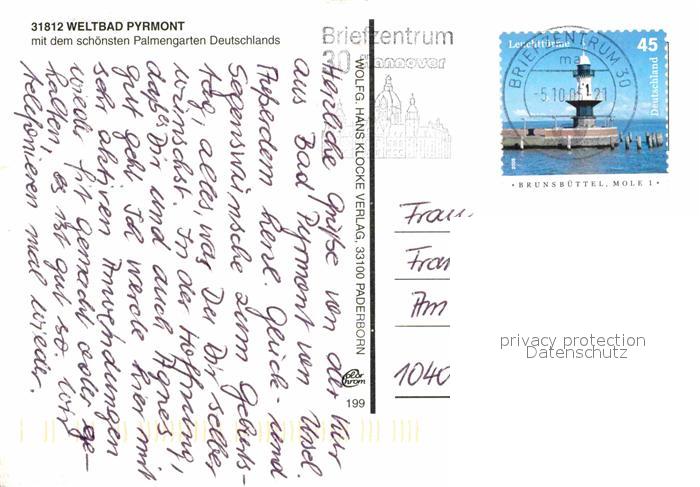 31812 WELTBAD PYRMONT
mit dem schönsten Palmengarten Deutschlands
Herzliche Grüße von der Kur
aus Bad Pyrmont von Usel.
Außerdem herzl. Glück- und
Segenswünsche zum Geburts-
tag, alles, was Du Dir selber
wünschst. In der Hoffnung,
daß es Dir und auch Agnes
gut geht. Ich werde hier mit
sehr aktiven Anwendungen
wieder fit gemacht oder ge-
halten, es ist gut so. Wir
telefonieren mal wieder.
WOLFG. HANS KLOCKE VERLAG, 33100 PADERBORN
color
chrom
199
Briefzentrum
30 Hannover
BRIEFZENTRUM 30
ma
-5.10.05-21
Leuchttürme
45
Deutschland
2005
• BRUNSBÜTTEL, MOLE 1 •
Frau
Am
1040
privacy protection
Datenschutz